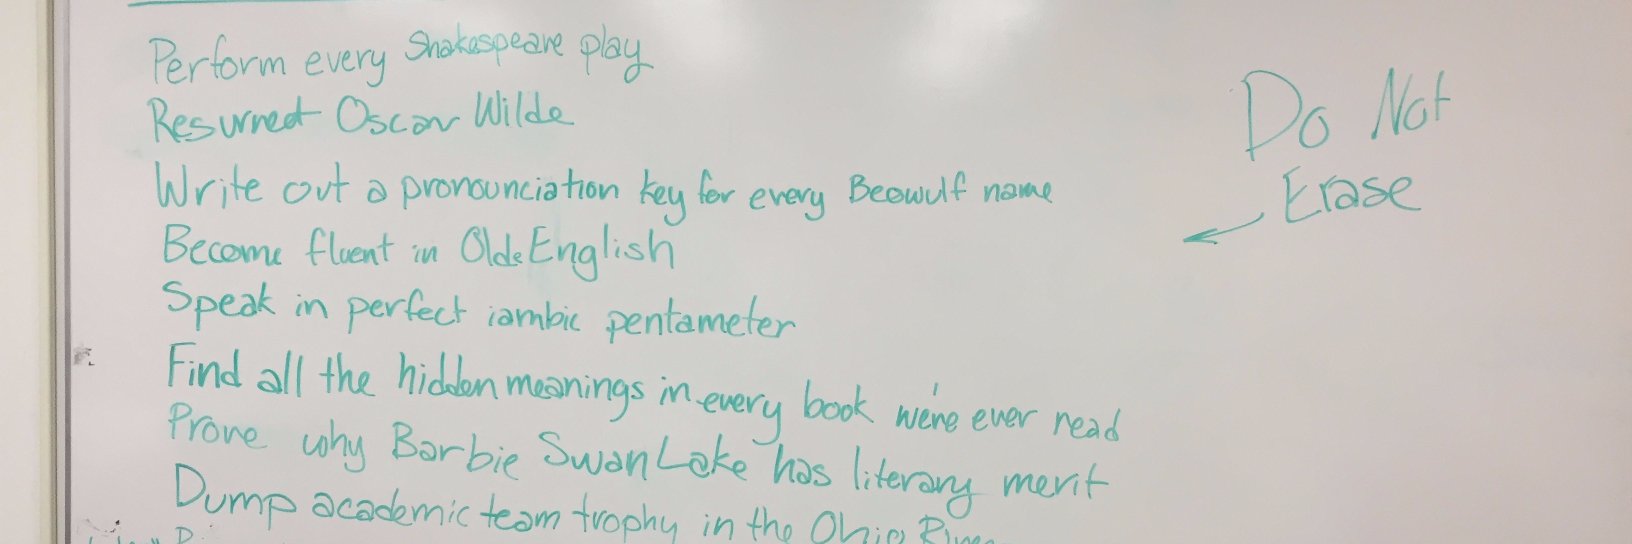 Perform every Shakespeare play
Resurrect Oscar Wilde
Write out a pronounciation key for every Beowulf name
Become fluent in Olde English
Speak in perfect iambic pentameter
Find all the hidden meanings in every book we're ever read
Prove why Barbie Swan Lake has literary merit
Dump academic team trophy in the Ohio River
Do Not
Erase